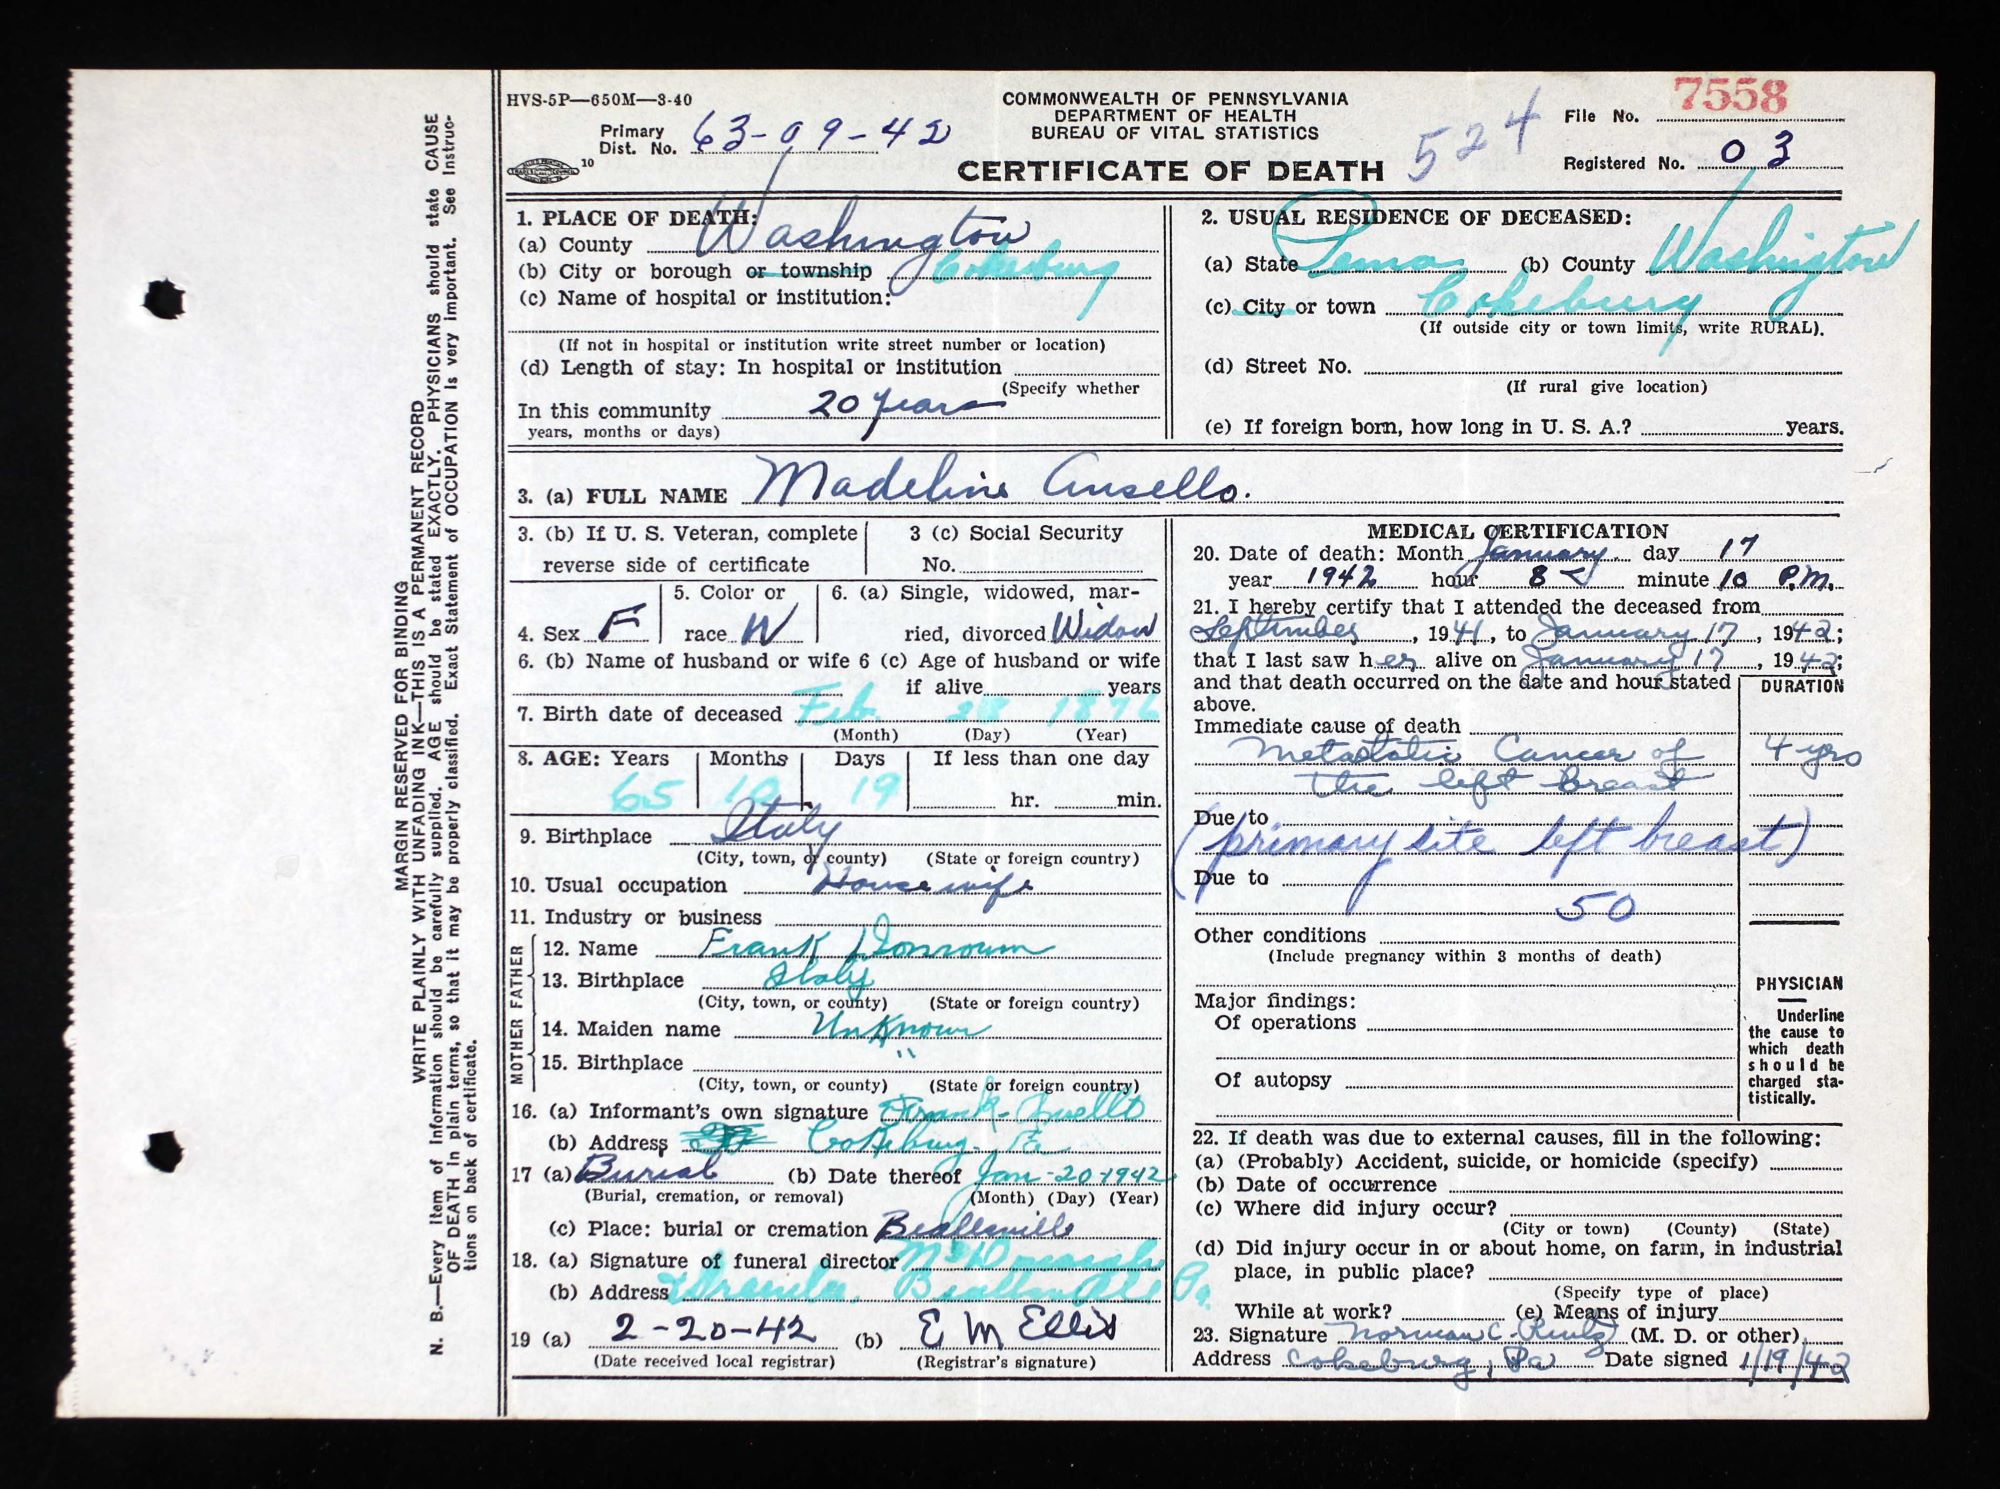 HVS-5P—650M—3-40
COMMONWEALTH OF PENNSYLVANIA
DEPARTMENT OF HEALTH
BUREAU OF VITAL STATISTICS
CERTIFICATE OF DEATH
524
File No. 7558
Primary
Dist. No. 63-09-42
10
Registered No. 03
MARGIN RESERVED FOR BINDING
WRITE PLAINLY WITH UNFADING INK—THIS IS A PERMANENT RECORD
N. B.—Every item of information should be carefully supplied. AGE should be stated EXACTLY. PHYSICIANS should state CAUSE
OF DEATH in plain terms, so that it may be properly classified. Exact Statement of OCCUPATION is very important. See Instruc-
tions on back of certificate.
1. PLACE OF DEATH:
(a) County Washington
(b) City or borough or township Cokeburg
(c) Name of hospital or institution:
(If not in hospital or institution write street number or location)
(d) Length of stay: In hospital or institution
(Specify whether
In this community 20 years
years, months or days)
2. USUAL RESIDENCE OF DECEASED:
(a) State Penna (b) County Washington
(c) City or town Cokeburg
(If outside city or town limits, write RURAL).
(d) Street No.
(If rural give location)
(e) If foreign born, how long in U. S. A.? years.
3. (a) FULL NAME Madeline Ansello.
3. (b) If U. S. Veteran, complete
reverse side of certificate
3 (c) Social Security
No.
4. Sex F
5. Color or
race W
6. (a) Single, widowed, mar-
ried, divorced Widow
6. (b) Name of husband or wife 6 (c) Age of husband or wife
if alive years
7. Birth date of deceased Feb. 28 1876
(Month) (Day) (Year)
8. AGE: Years Months Days If less than one day
65 10 19 hr. min.
9. Birthplace Italy
(City, town, or county) (State or foreign country)
10. Usual occupation Housewife
11. Industry or business
FATHER
12. Name Frank
13. Birthplace Italy
(City, town, or county) (State or foreign country)
MOTHER
14. Maiden name Unknown
15. Birthplace "
(City, town, or county) (State or foreign country)
16. (a) Informant's own signature Frank
(b) Address Cokeburg, Pa
17 (a) Burial (b) Date thereof Jan-20-1942
(Burial, cremation, or removal) (Month) (Day) (Year)
(c) Place: burial or cremation Beallsville
18. (a) Signature of funeral director
(b) Address Beallsville Pa.
19 (a) 2-20-42 (b) E M Ellis
(Date received local registrar) (Registrar's signature)
MEDICAL CERTIFICATION
20. Date of death: Month January day 17
year 1942 hour 8 minute 10 P.M.
21. I hereby certify that I attended the deceased from
September, 1941, to January 17, 1942;
that I last saw her alive on January 17, 1942;
and that death occurred on the date and hour stated
above.
DURATION
Immediate cause of death
Metastatic Cancer of 4 yrs
the left Breast
Due to
(primary site left breast)
Due to
50
Other conditions
(Include pregnancy within 3 months of death)
Major findings:
Of operations
Of autopsy
PHYSICIAN
Underline
the cause to
which death
should be
charged sta-
tistically.
22. If death was due to external causes, fill in the following:
(a) (Probably) Accident, suicide, or homicide (specify)
(b) Date of occurrence
(c) Where did injury occur?
(City or town) (County) (State)
(d) Did injury occur in or about home, on farm, in industrial
place, in public place?
(Specify type of place)
While at work? (e) Means of injury
23. Signature Norman C. (M. D. or other)
Address Cokeburg, Pa Date signed 1/19/42